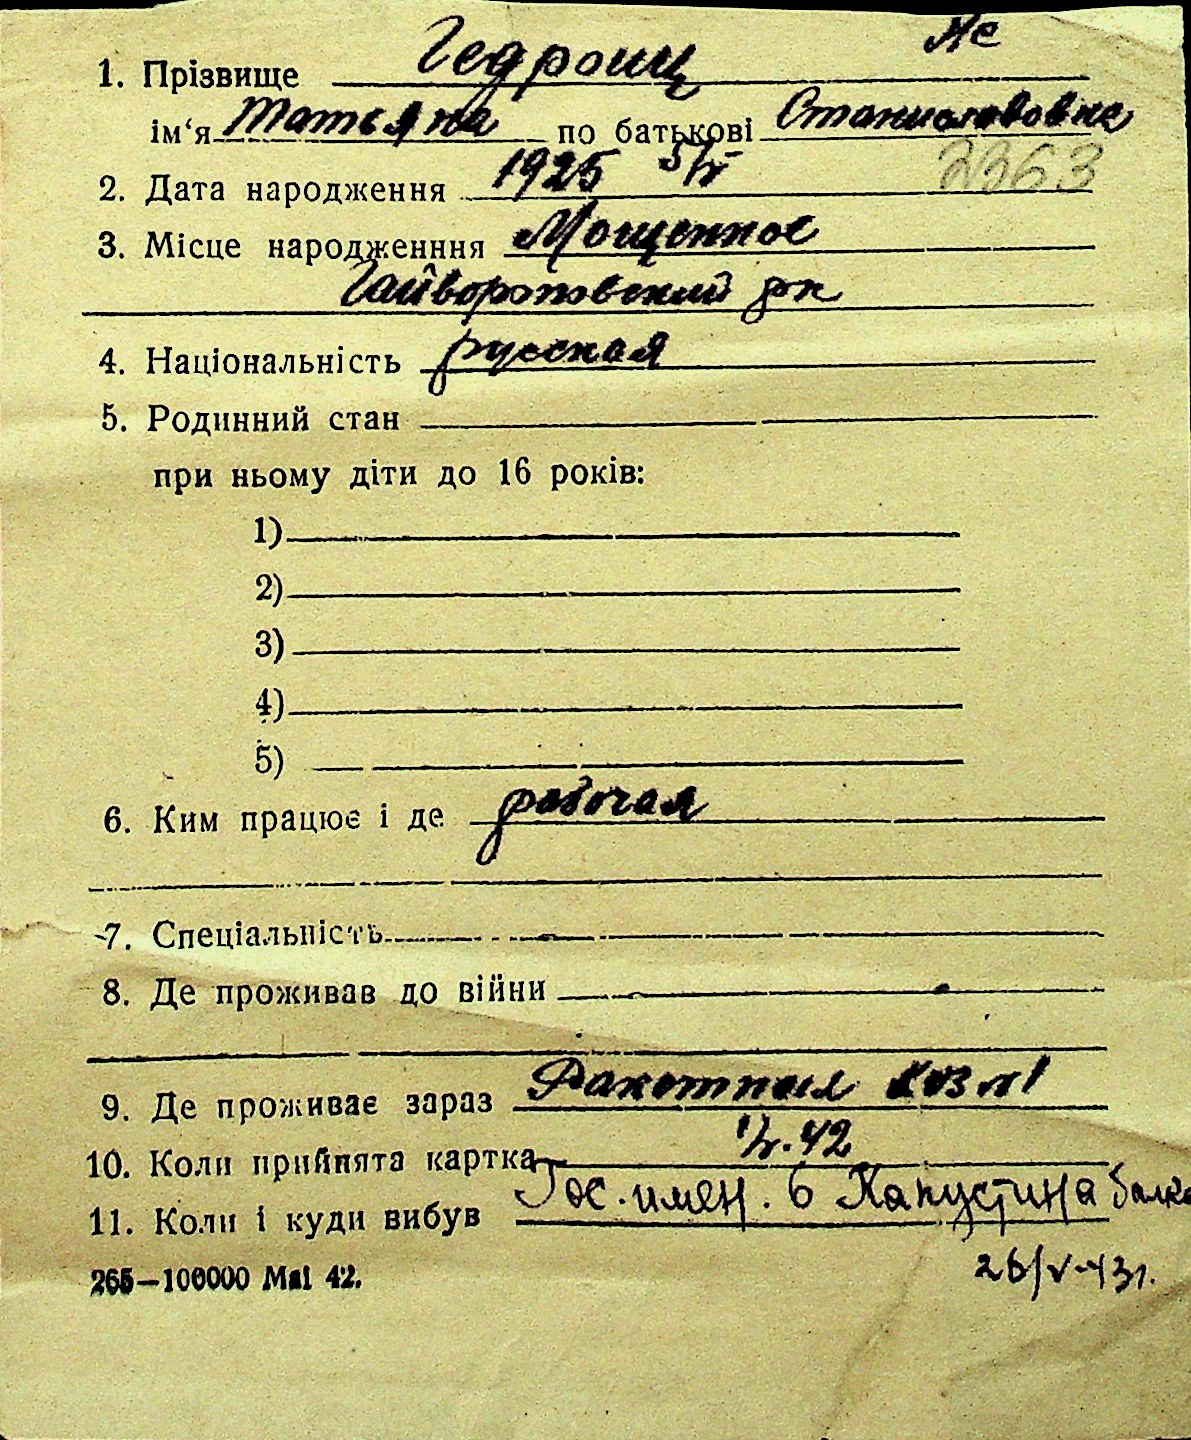 Не
1. Прізвище Гедройц
ім‘я Татьяна по батькові Станиславовна
2. Дата народження 1925 5/V 2363
3. Місце народженння Мощенное
Гайворонский рн
4. Національність русская
5. Родинний стан
при ньому діти до 16 років:
1)
2)
3)
4)
5)
6. Ким працює і де рабочая
7. Спеціальність
8. Де проживав до війни
9. Де проживає зараз Ракетная
10. Коли прийнята картка
11. Коли і куди вибув Гос. имен. 6 Капустина балка
26/V-43г.
265—100000 Mai 42.